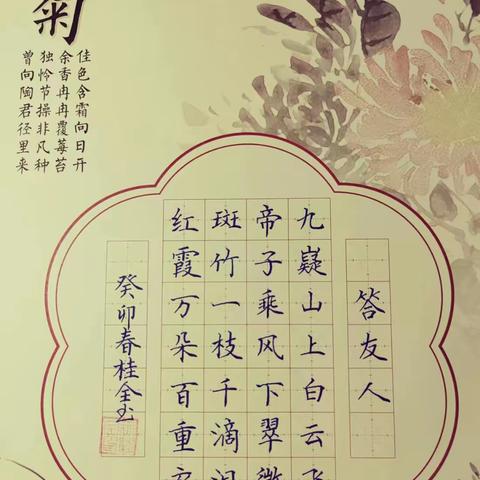 菊
佳色含霜向日开
余香冉冉覆莓苔
独怜节操非凡种
曾向陶君径里来
答友人
九嶷山上白云飞
帝子乘风下翠微
斑竹一枝千滴泪
红霞万朵百重
癸卯春桂全玉